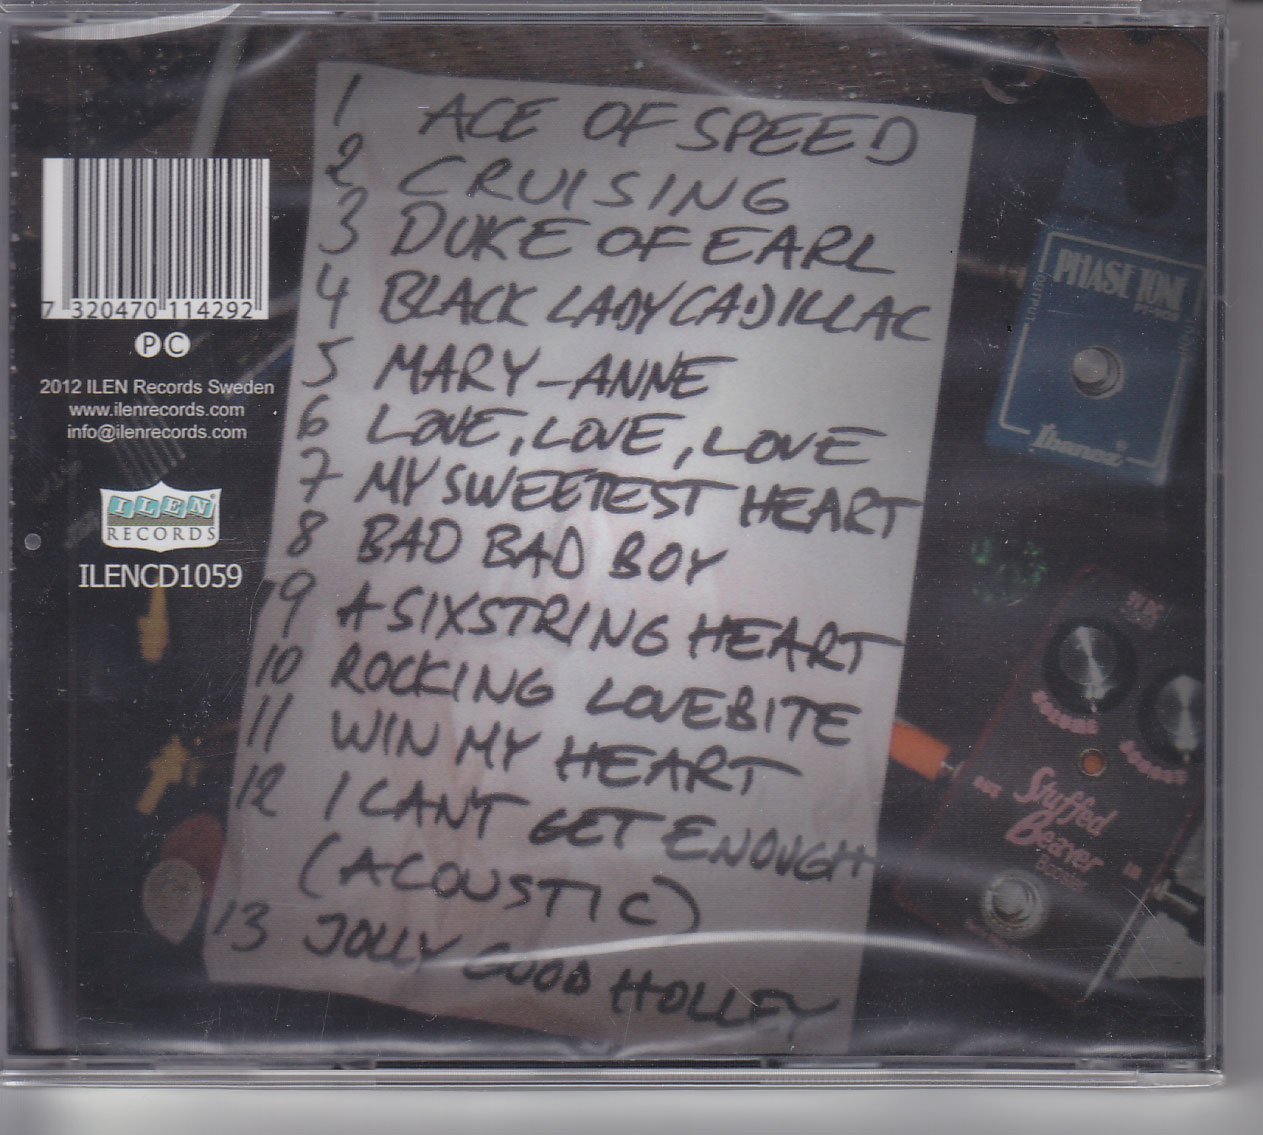 1 ACE OF SPEED
2 CRUISING
3 DUKE OF EARL
4 BLACK LADY CADILLAC
5 MARY-ANNE
6 LOVE, LOVE, LOVE
7 MY SWEETEST HEART
8 BAD BAD BOY
9 A SIXSTRING HEART
10 ROCKING LOVEBITE
11 WIN MY HEART
12 I CAN'T GET ENOUGH
(ACOUSTIC)
13 JOLLY GOOD HOLLEY
7 320470 114292
P C
2012 ILEN Records Sweden
www.ilenrecords.com
info@ilenrecords.com
ILEN
RECORDS
ILENCD1059
PHASE TONE
OUTPUT
Ibanez
OUT
Stuffed
Beaver
Booster
IN